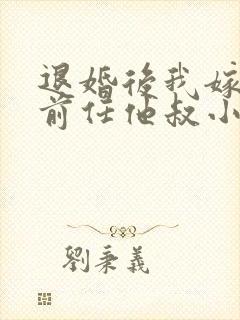 退婚後我嫁
前任他叔小
劉秉義